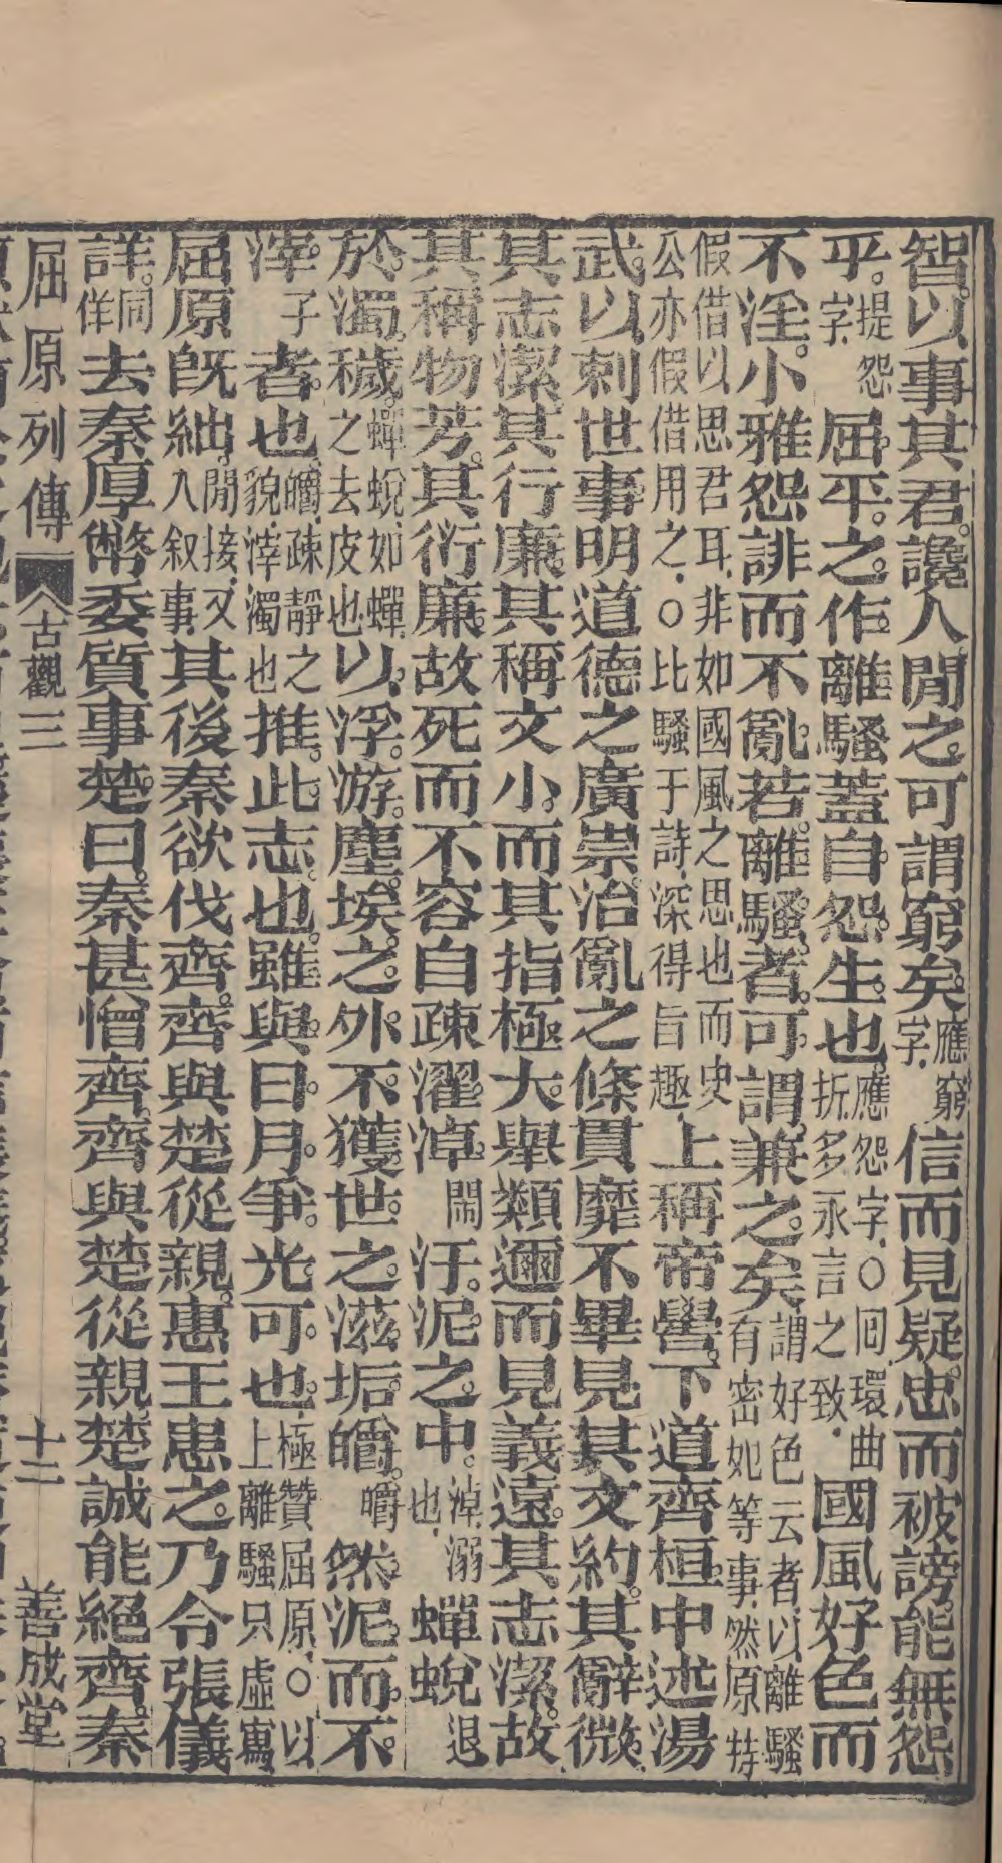 智以事其君讒人閒之可謂窮矣應窮字信而見疑忠而被謗能無怨
乎提怨字屈平之作離騷蓋自怨生也應怨字○囘環曲折多永言之致國風好色而
不淫小雅怨誹而不亂若離騷者可謂兼之矣謂好色云者以離騷有密妃等事然原特
假借以思君耳非如國風之思也而史公亦假借用之○比騷于詩深得旨趣上稱帝嚳下道齊桓中述湯
武以刺世事明道德之廣崇治亂之條貫靡不畢見其文約其辭微
其志潔其行廉其稱文小而其指極大舉類邇而見義遠其志潔故
其稱物芳其衍廉故死而不容自疎濯淖鬧汙泥之中淖溺也蟬蛻退
於濁穢蟬蛻如蟬之去皮也以浮游塵埃之外不獲世之滋垢皭皭然泥而不
滓子者也皭疎靜之貌滓濁也推此志也雖與日月爭光可也極贊屈原○以上離騷只虛寓
屈原旣絀閒接又入叙事其後秦欲伐齊齊與楚從親惠王患之乃令張儀
詳同佯去秦厚幣委質事楚曰秦甚憎齊齊與楚從親楚誠能絕齊秦
屈原列傳 古觀三 十二 善成堂